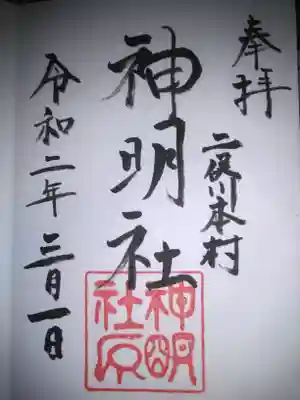 奉拝
二俣川本村
神明社
神明
社印
令和二年三月一日